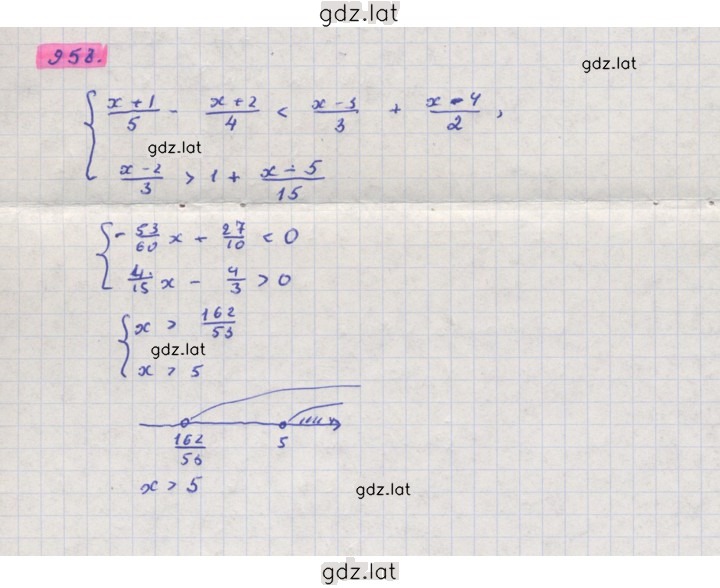 gdz.lat
958.
gdz.lat
{ (x+1)/5 - (x+2)/4 < (x-3)/3 + (x-4)/2,
gdz.lat
(x-2)/3 > 1 + (x-5)/15
{ -53/60 x + 27/10 < 0
4/15 x - 4/3 > 0
{ x > 162/53
gdz.lat
x > 5
162/53 5
x > 5
gdz.lat
gdz.lat